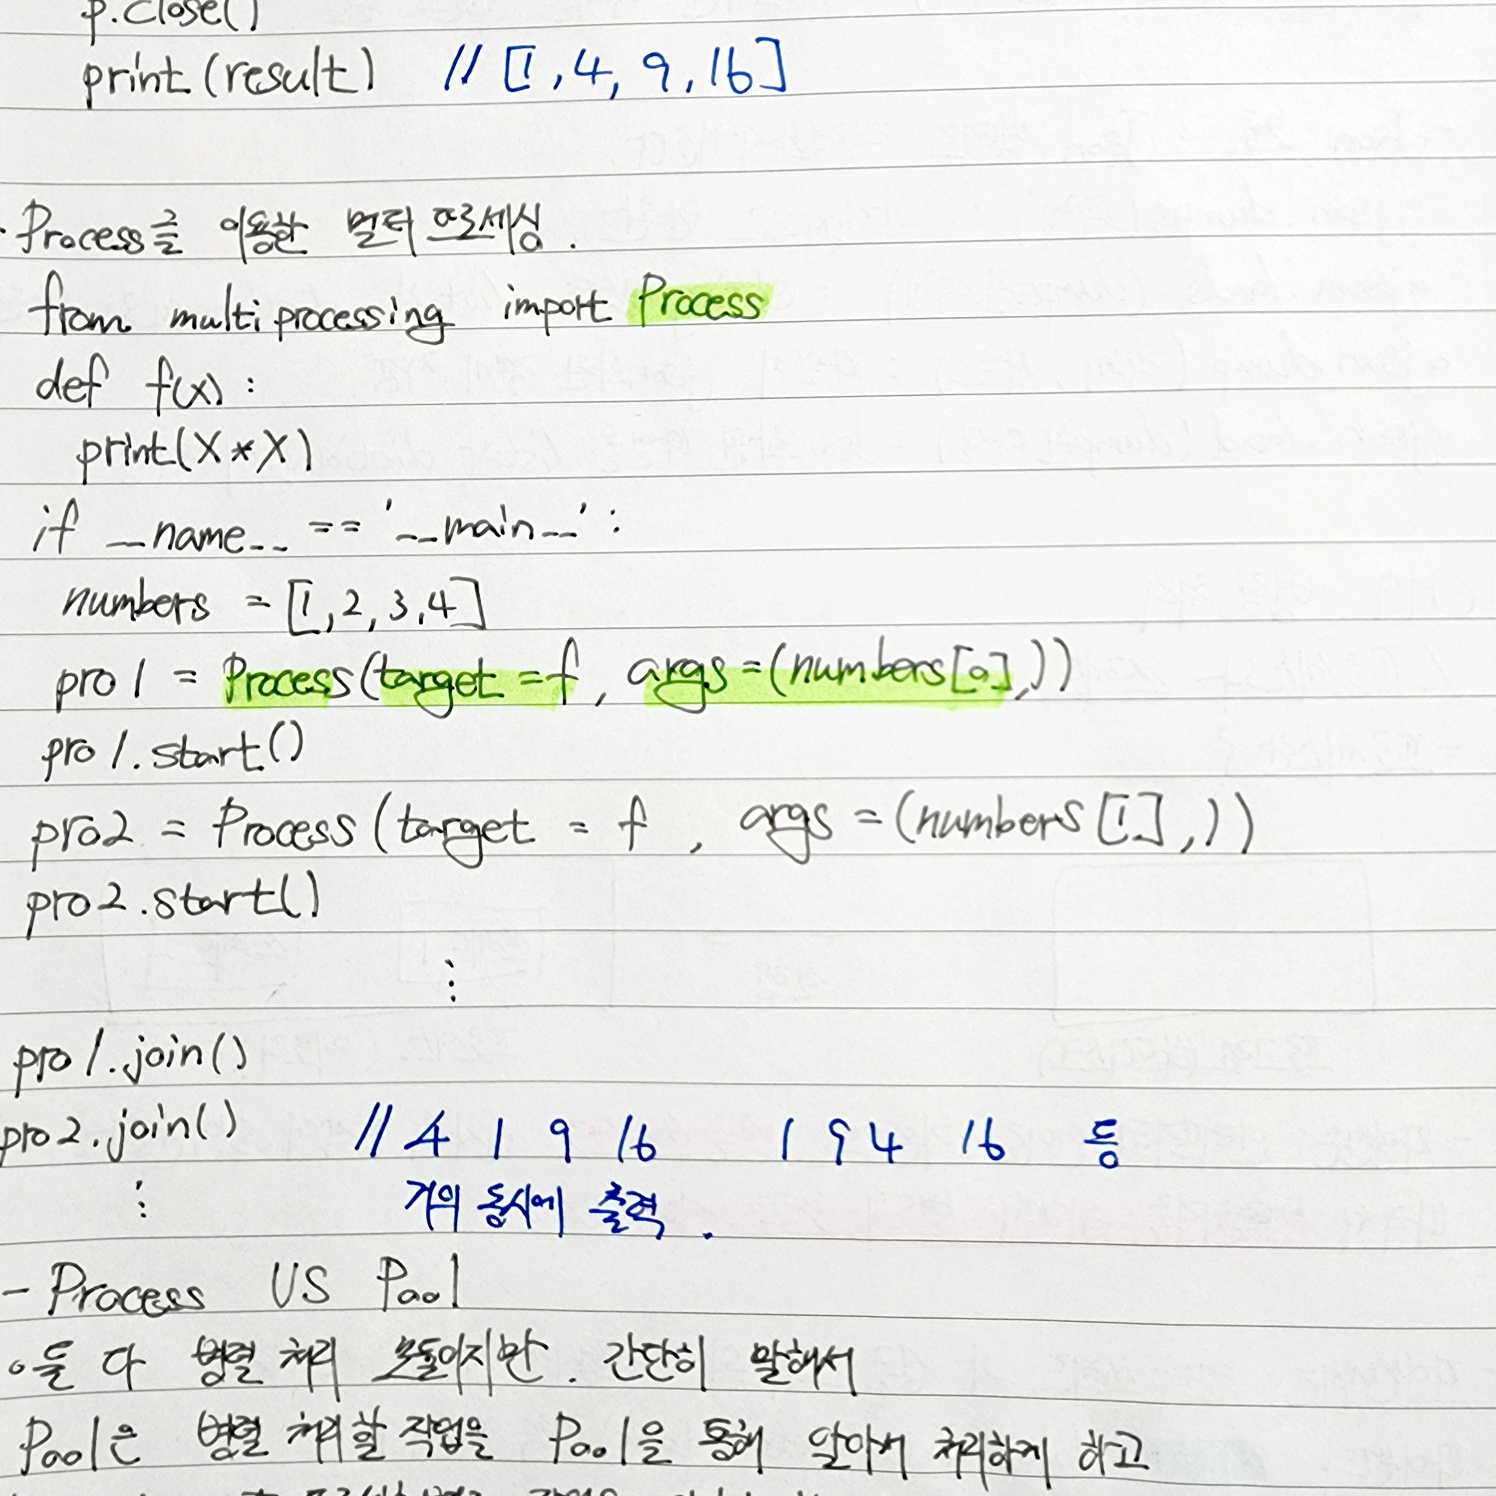 p.close()
print(result) // [1, 4, 9, 16]
· Process를 이용한 멀티 프로세싱.
from multiprocessing import Process
def f(x) :
print(x*x)
if __name__ == '__main__' :
numbers = [1, 2, 3, 4]
pro1 = Process(target = f, args = (numbers[0],))
pro1.start()
pro2 = Process(target = f, args = (numbers[1],))
pro2.start()
⋮
pro1.join()
pro2.join() // 4 1 9 16 1 9 4 16 등
⋮ 거의 동시에 출력.
- Process VS Pool
◦ 둘 다 병렬 처리 모듈이지만. 간단히 말해서
Pool은 병렬 처리할 작업을 Pool을 통해 알아서 처리하게 하고